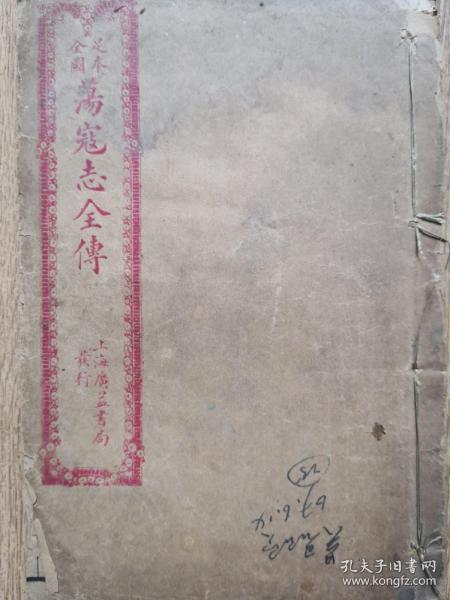 足本
全圖
蕩寇志全傳
上海廣益書局
發行
67.6.14
孔夫子旧书网
www.kongfz.com